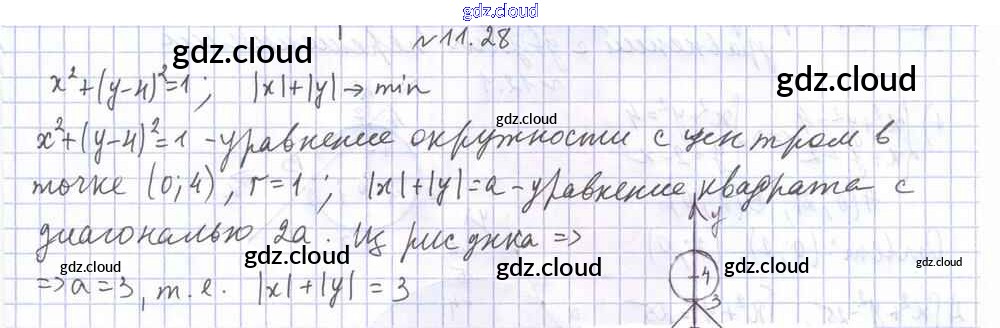 gdz.cloud
№11.28
x²+(y-4)²=1; |x|+|y|→min
x²+(y-4)²=1 - уравнение окружности с центром в
точке (0;4), r=1; |x|+|y|=a - уравнение квадрата с
диагональю 2a. Из рисунка =>
=> a=3, т.е. |x|+|y|=3
y
4
3
gdz.cloud
gdz.cloud
gdz.cloud
gdz.cloud
gdz.cloud
gdz.cloud
gdz.cloud
gdz.cloud
gdz.cloud
gdz.cloud
gdz.cloud